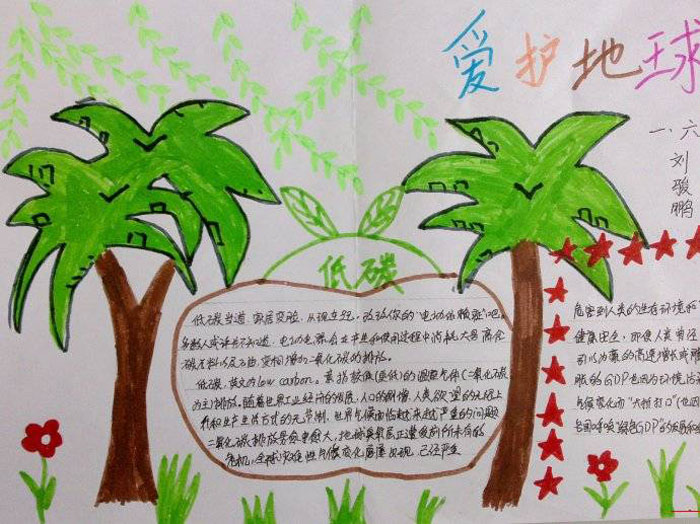 爱护地球
一.六
刘
骏
鹏
低碳
低碳当道 家居变脸，从现在起，改改你的"电力依赖症"吧。
多数人或许并不知道，电力电器会在生产和使用过程中消耗大量高化
碳石料以及石油，变相增加二氧化碳的排放。
低碳，英文为low carbon。意指较低(更低)的温室气体(二氧化碳
为主)排放，随着世界工业经济的发展、人口的剧增、人类欲望的无限上
升和生产生活方式的无节制，世界气候面临越来越严重的问题，
二氧化碳排放量愈来愈大，地球臭氧层正遭受前所未有的
危机，全球灾难性气候变化屡屡出现，已经严重
危害到人类的生存环境和
健康安全，即使人类曾经
引以为豪的高速增长或膨
胀的GDP也因为环境污
气候变化而"大打折扣"(也因
各国呼唤"绿色GDP"的发展